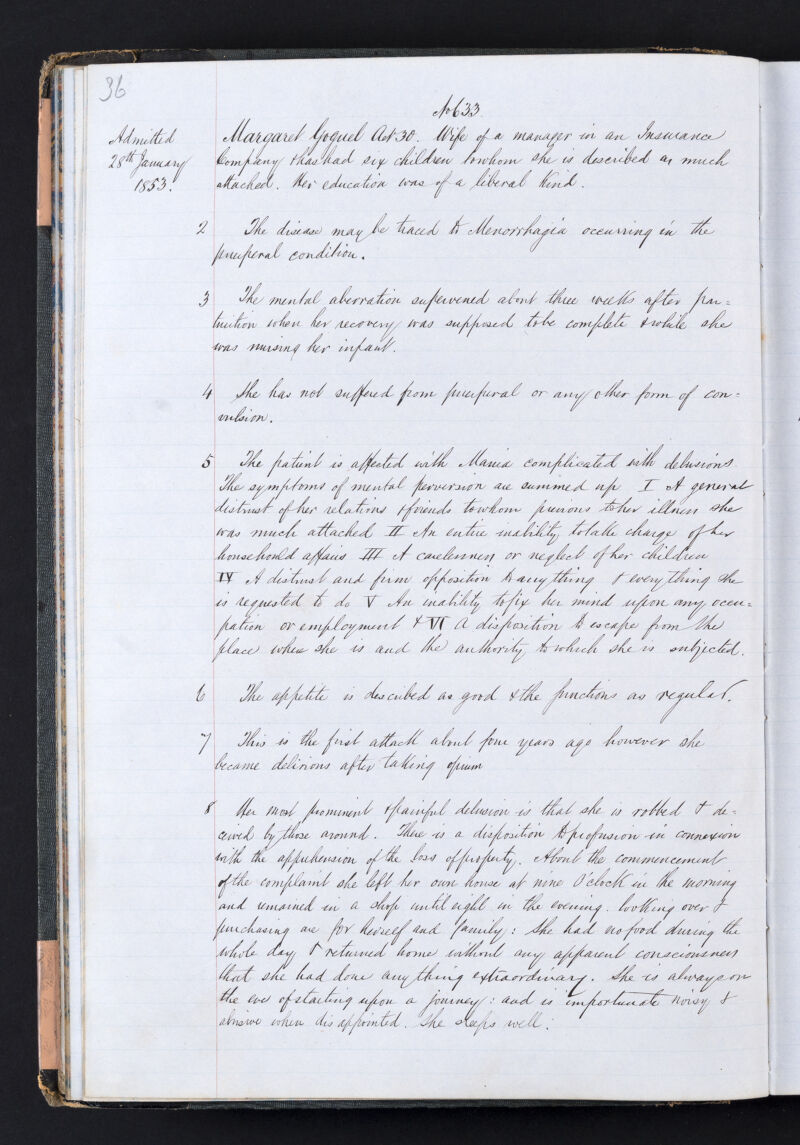 36
No 633
Admitted
28th January
1853.
Margaret Goguel Aet 30. Wife of a manager in an Insurance
Company & has had six children to whom she is described as much
attached. Her education was of a liberal kind.
2 The disease may be traced to Menorrhagia occurring in the
puerperal condition.
3 The mental aberration supervened about three weeks after par=
turition when her recovery was supposed to be complete & while she
was nursing her infant.
4 She has not suffered from puerperal or any other form of con=
vulsion.
5 The patient is affected with Mania complicated with delusions.
The symptoms of mental perversion are summed up I A general
distrust of her relations & friends to whom previous to her illness she
was much attached II An entire inability to take charge of her
househould affairs III A carelessness or neglect of her children
IV A distrust and firm opposition to any thing & every thing she
is requested to do V An inability to fix her mind upon any occu=
pation or employment & VI A disposition to escape from the
place where she is and the authority to which she is subjected.
6 The appetite is described as good & the functions as regular.
7 This is the first attack about four years ago however she
became delirious after taking opium
8 Her most prominent & painful delusion is that she is robbed & de=
ceived by those around. There is a disposition to profusion in connexion
with the apprehension of the loss of property. About the commencement
of the complaint she left her own house at nine O'clock in the morning
and remained in a shop until eight in the evening. looking over &
purchasing for herself and family: She had no food during the
whole day & returned home without any apparent consciousness
that she had done any thing extraordinary. She is always on
the eve of starting upon a journey: and is importunate noisy &
abusive when disappointed. She sleeps well.